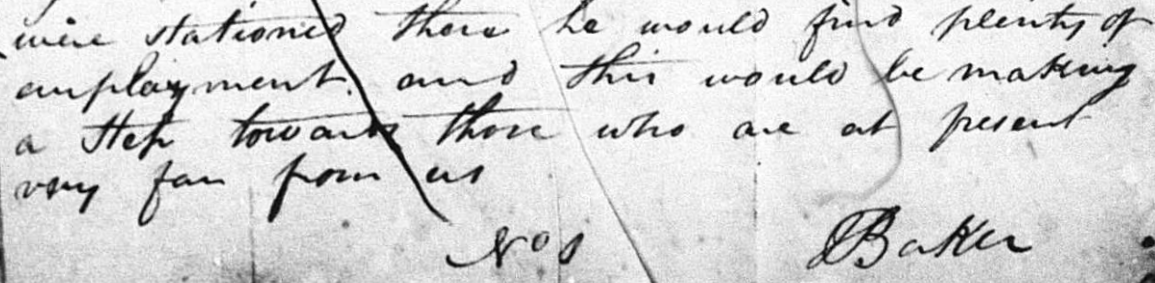 were stationed there he would find plenty of
employment. and this would be making
a Step towards those who are at present
very far from us
No 1 Baker